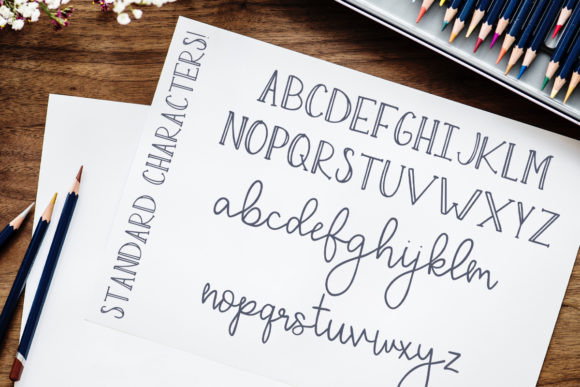 STANDARD CHARACTERS!
ABCDEFGHIJKLM
NOPQRSTUVWXYZ
abcdefghijklm
nopqrstuvwxyz